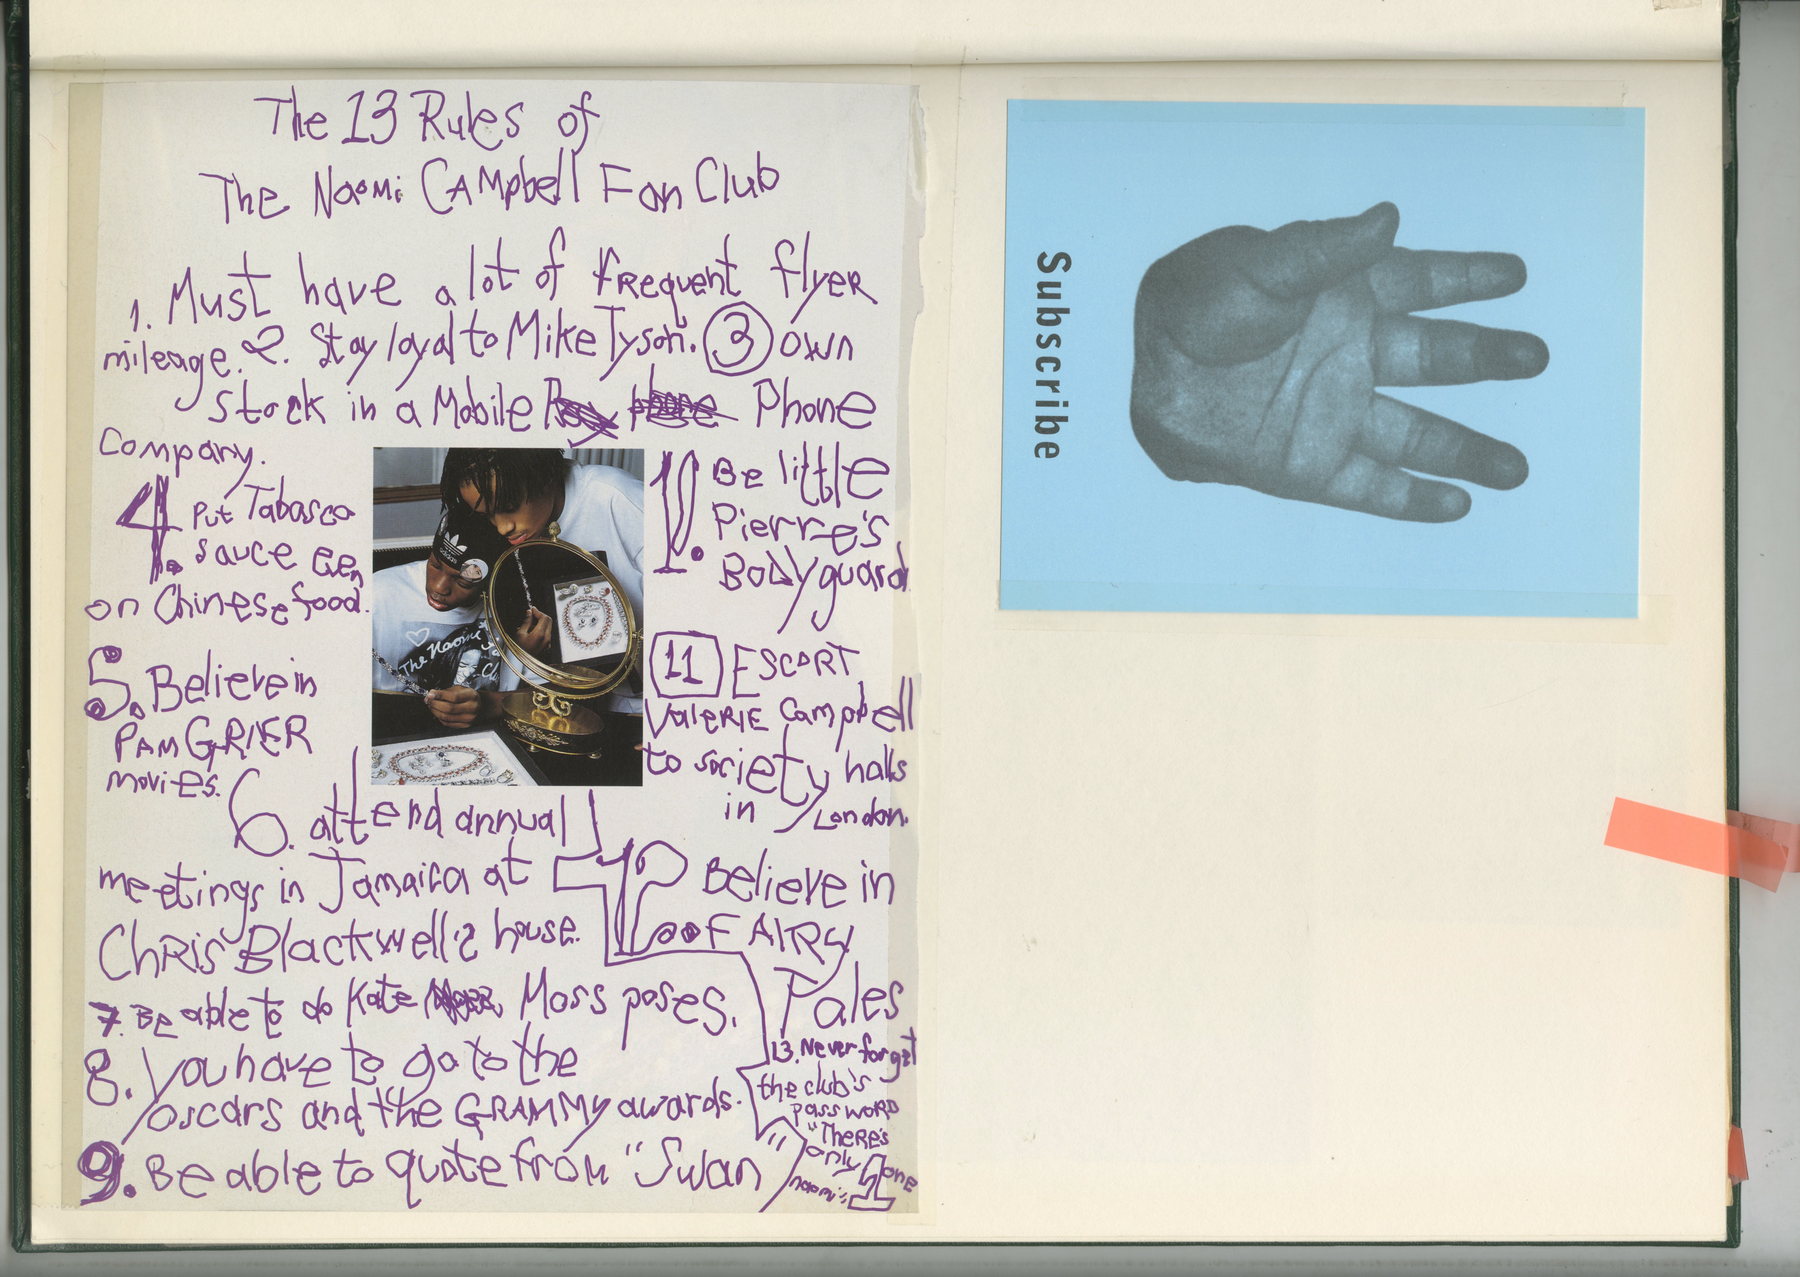 The 13 Rules of
The Naomi Campbell Fan Club
1. Must have a lot of frequent flyer
mileage. 2. Stay loyal to Mike Tyson. 3 own
stock in a Mobile Phone
Company.
4. Put Tabasco
sauce even
on Chinese food.
5. Believe in
PAM GRIER
movies.
6. attend annual
meetings in Jamaica at
Chris Blackwell's house.
7. Be able to do Kate Moss poses.
8. You have to go to the
oscars and the GRAMMY awards.
9. Be able to quote from "Swan"
10. Be little
Pierre's
Bodyguard
11 ESCORT
Valerie Campbell
to society halls
in London.
12 Believe in
FAIRY
Tales
13. Never forget
the club's
password
"There's
only 1 one
naomi"
adidas
The Naomi
Subscribe